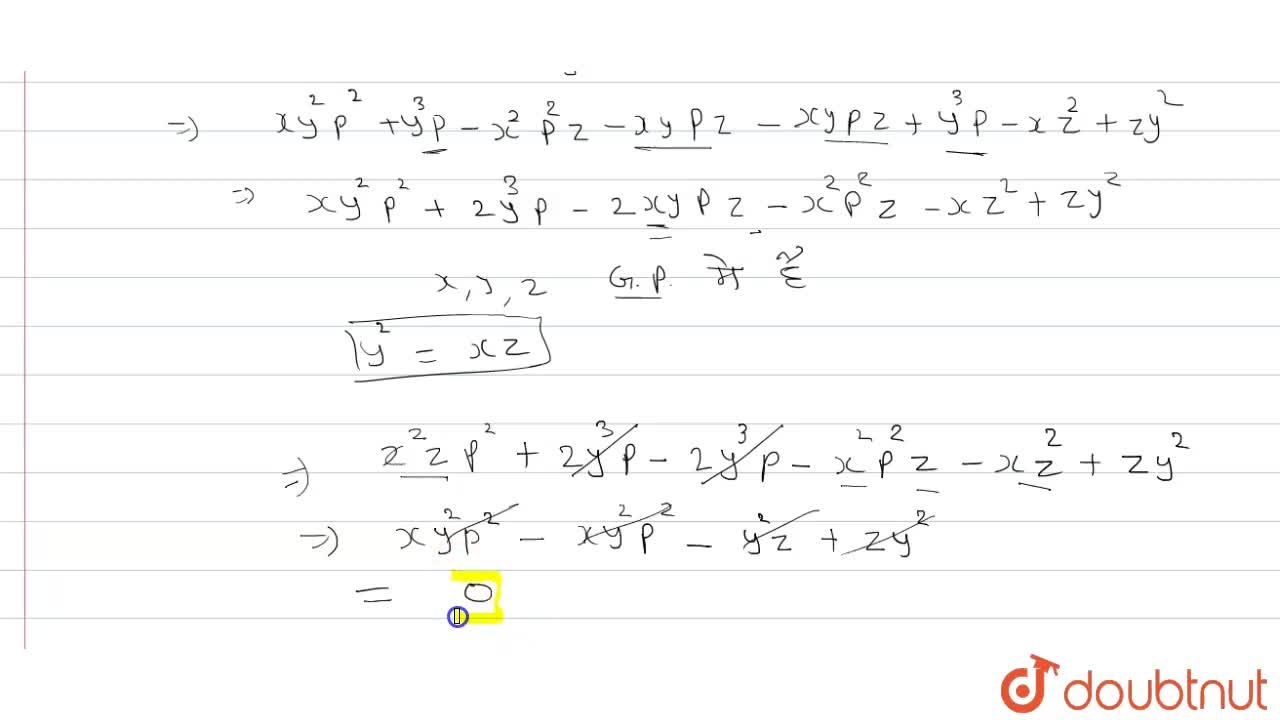 => xy²p² + y³p - x²p²z - xypz - xypz + y³p - xz² + zy²
=> xy²p² + 2y³p - 2xypz - x²p²z - xz² + zy²
x, y, z G.P. में हैं
y² = xz
=> x²zp² + 2y³p - 2y³p - x²p²z - xz² + zy²
=> xy²p² - xy²p² - y²z + zy²
= 0
doubtnut